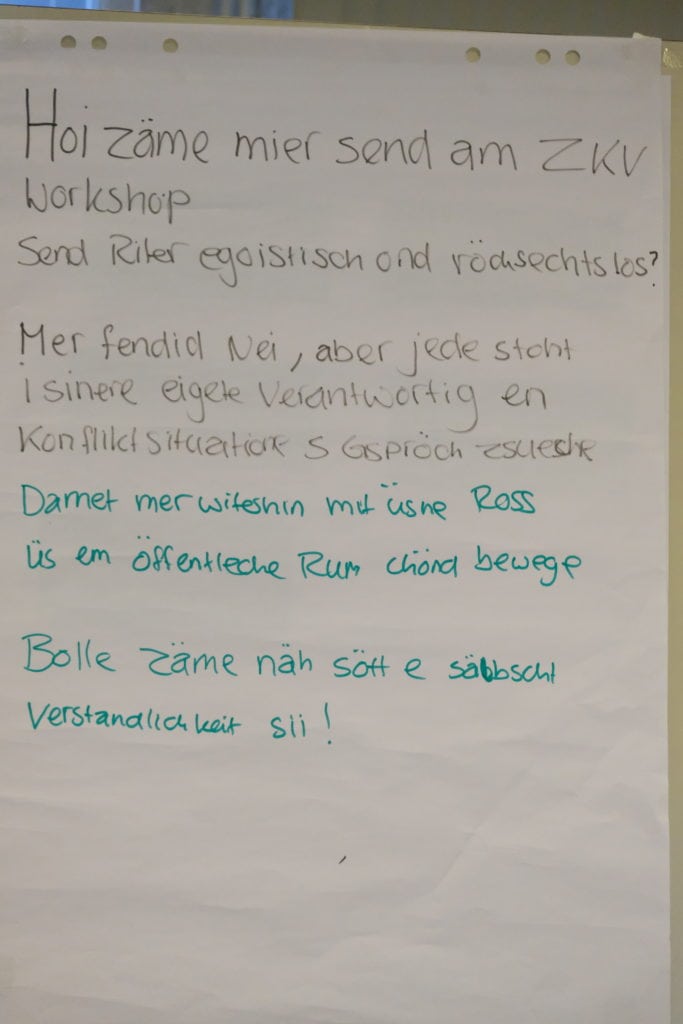 Hoi zäme mier send am ZKV
Workshop
Send Riter egoistisch ond röcksechtslos?
Mer fendid Nei, aber jede stoht
i sinere eigete Verantwortig en
Konfliktsituatione s Gspröch zsueche
Damet mer witeshin mit üsne Ross
üs em öffentleche Rum chönd bewege
Bolle zäme näh sött e säbbscht
Verständlichkeit sii!